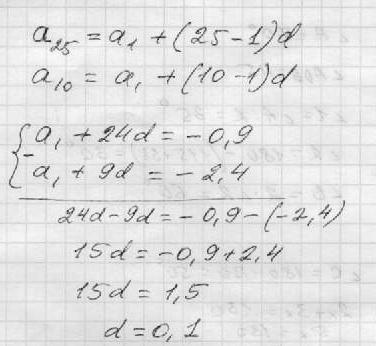 a₂₅ = a₁ + (25-1)d
a₁₀ = a₁ + (10-1)d
{ a₁ + 24d = -0,9
- a₁ + 9d = -2,4
24d-9d = -0,9-(-2,4)
15d = -0,9+2,4
15d = 1,5
d = 0,1